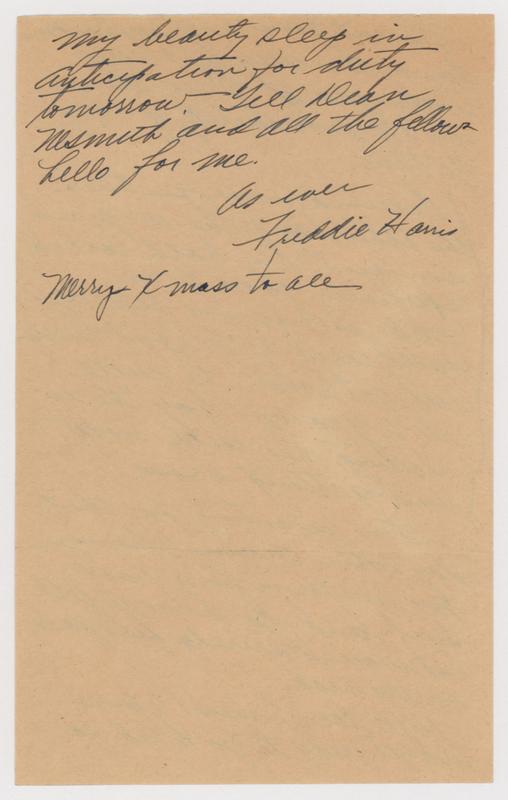 my beauty sleep in
anticipation for duty
tomorrow. Tell Dean
Nesmith and all the fellows
hello for me.
As ever
Freddie Harris
Merry X mass to all